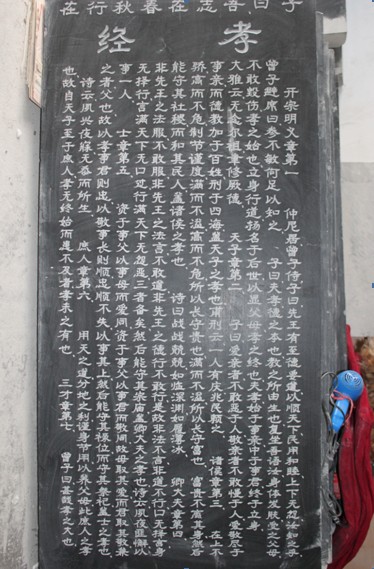 子曰吾志在春秋行在
孝经
开宗明义章第一 仲尼居曾子侍子曰先王有至德要道以顺天下民用和睦上下无怨汝知之乎
曾子避席曰参不敏何足以知之 子曰夫孝德之本也教之所由生也复坐吾语汝身体发肤受之父母
不敢毁伤孝之始也立身行道扬名于后世以显父母孝之终也夫孝始于事亲中于事君终于立身
大雅云无念尔祖聿修厥德 天子章第二 子曰爱亲者不敢恶于人敬亲者不敢慢于人爱敬尽于
事亲而德教加于百姓刑于四海盖天子之孝也甫刑云一人有庆兆民赖之 诸侯章第三 在上不
骄高而不危制节谨度满而不溢高而不危所以长守贵也满而不溢所以长守富也 富贵不离其身然后
能守其社稷而和其民人盖诸侯之孝也 诗曰战战兢兢如临深渊如履薄冰 卿大夫章第四
非先王之法服不敢服非先王之法言不敢道非先王之德行不敢行是故非法不言非道不行口无择言身
无择行言满天下无口过行满天下无怨恶三者备矣然后能守其宗庙盖卿大夫之孝也诗云夙夜匪懈以
事一人 士章第五 资于事父以事母而爱同资于事父以事君而敬同故母取其爱而君取其敬兼
之者父也故以孝事君则忠以敬事长则顺忠顺不失以事其上然后能守其禄位而守其祭祀盖士之孝也
诗云夙兴夜寐无忝而所生 庶人章第六 用天之道分地之利谨身节用以养父母此庶人之孝
也故自天子至于庶人孝无终始而患不及者孝未之有也 三才章第七 曾子曰甚哉孝之大也